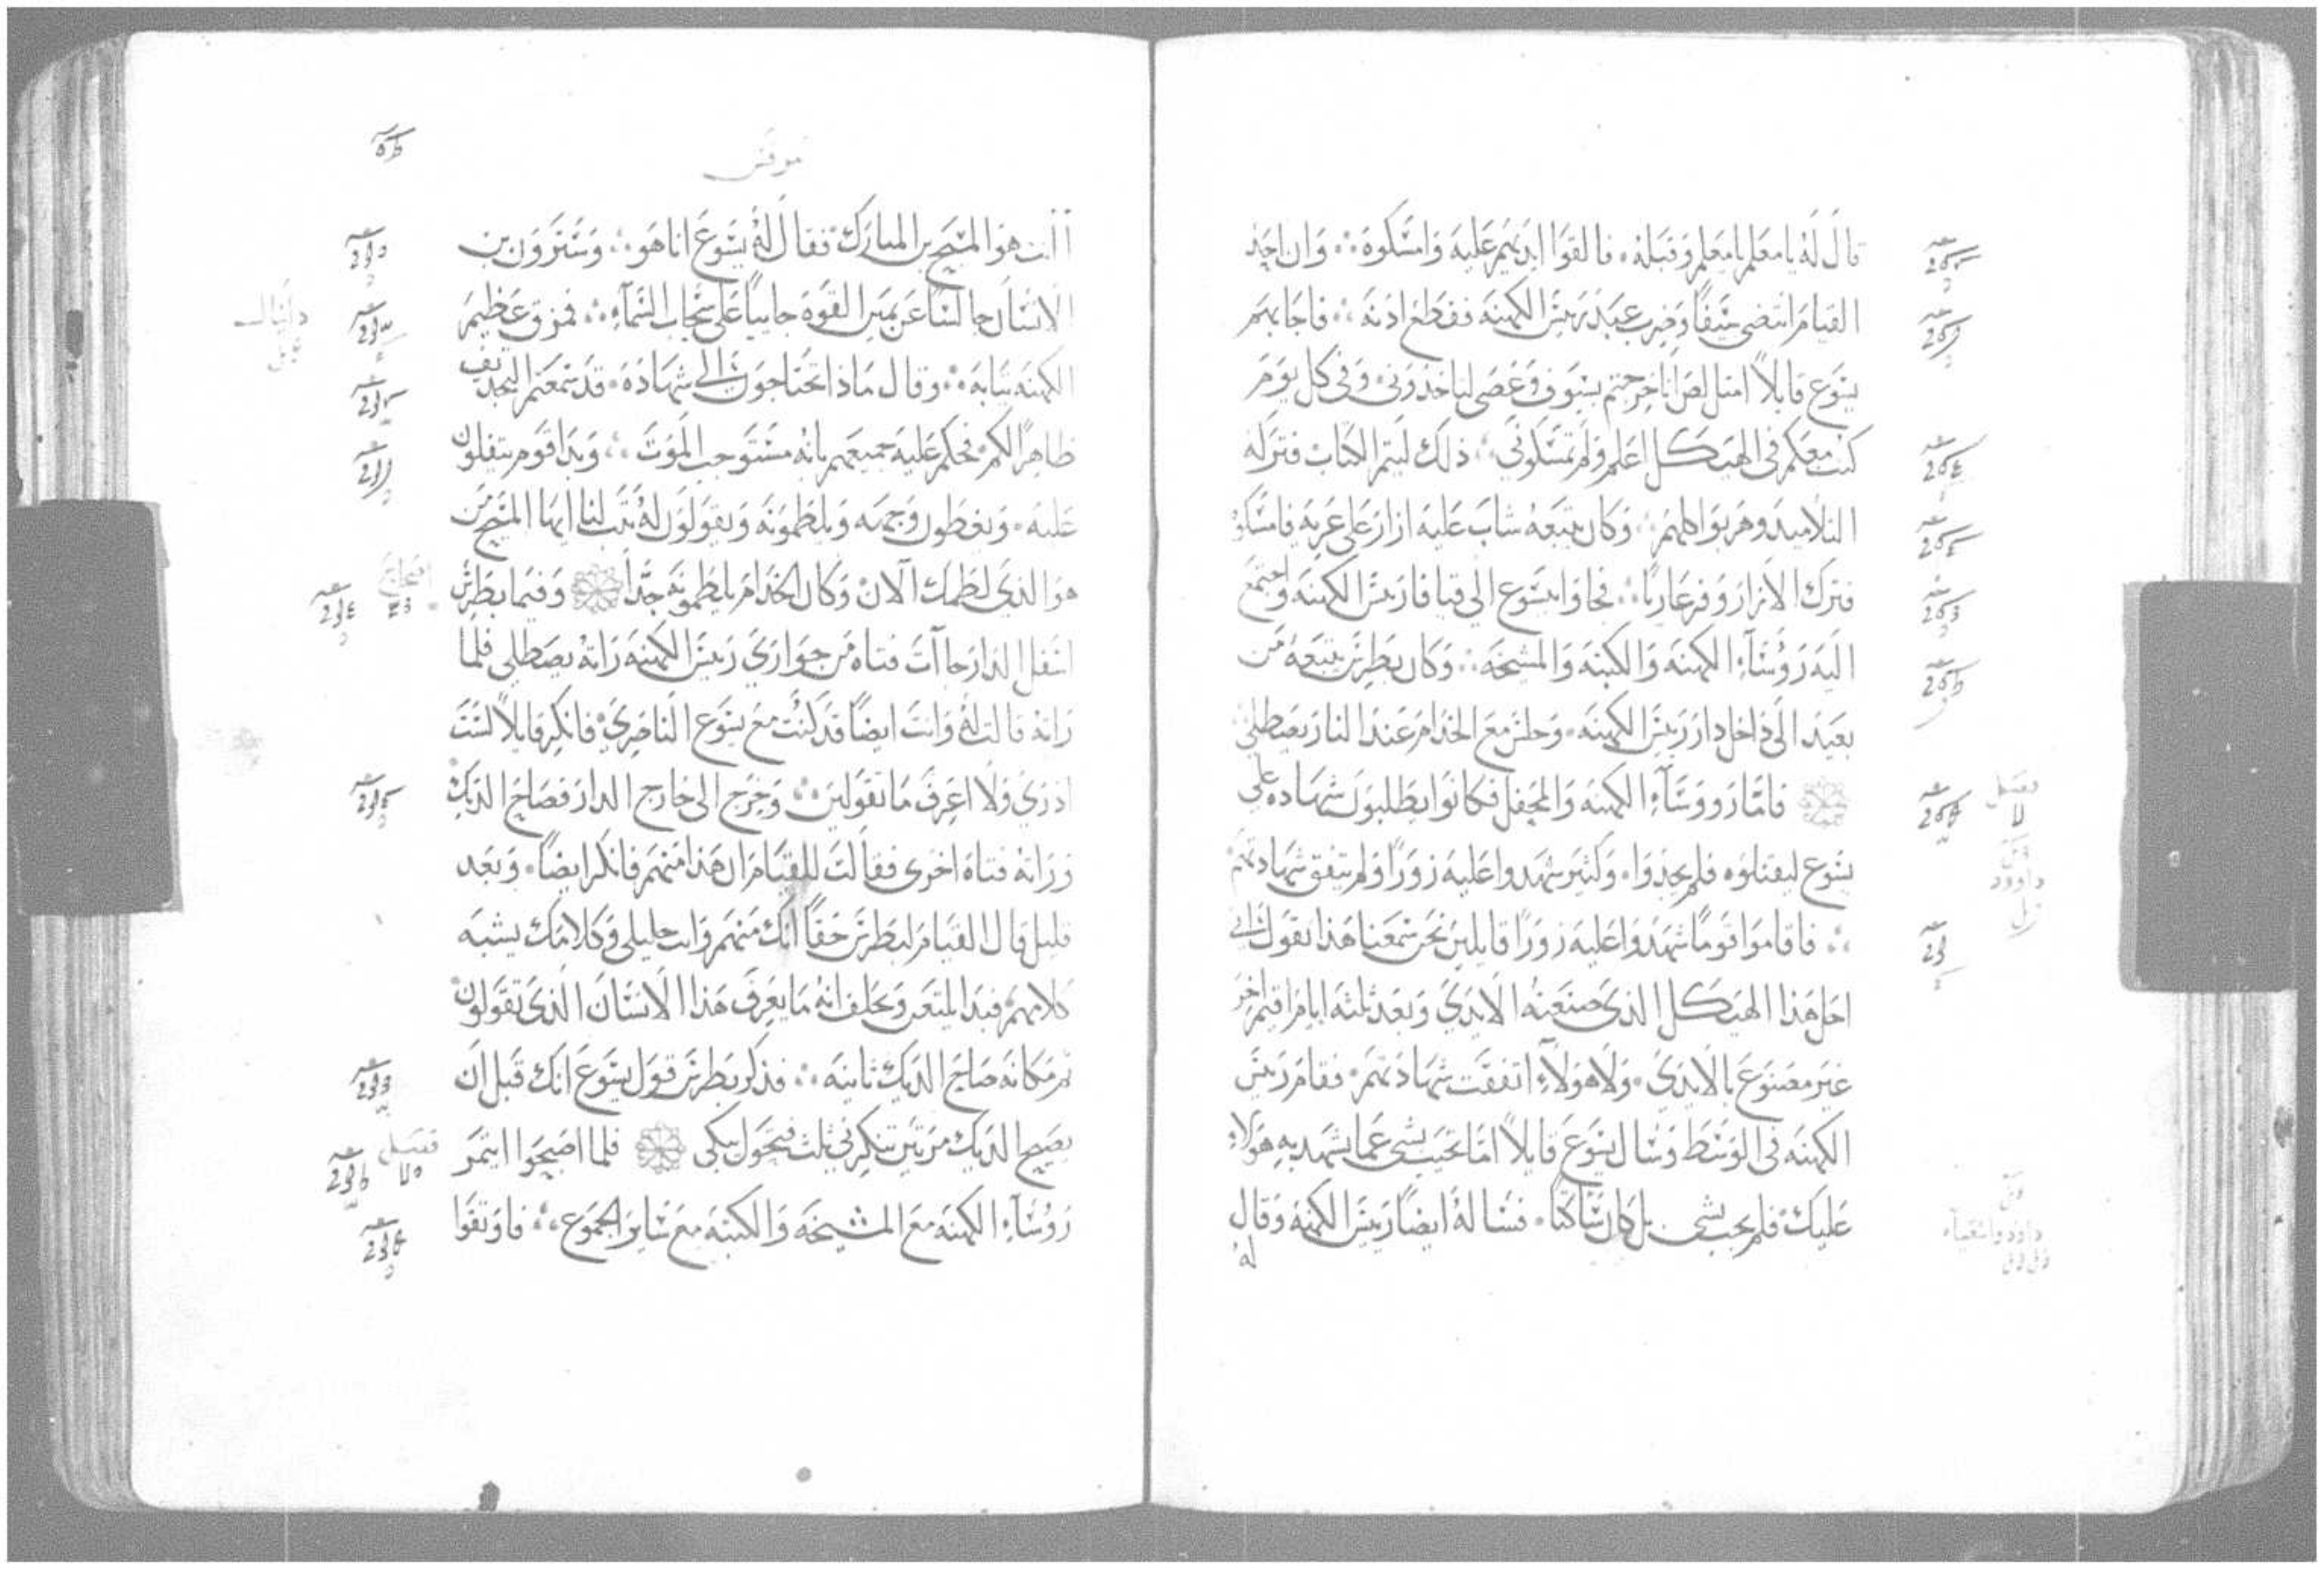 قال له يا معلم يا معلم وقبله ۰ فالقوا ايديهم عليه وامسكوه ۰ وان احد
القيام انتضى سيفا وضرب عبد رييس الكهنه فقطع اذنه ۰ فاجابهم
يسوع قايلا امثل لص انا خرجتم بسيوف وعصى لتاخذونى ۰ وفى كل يوم
كنت معكم فى الهيكل اعلم ولم تمسكونى ۰ ذلك ليتم الكتاب فتركه
التلاميد وهربوا كلهم ۰ وكان يتبعه شاب عليه ازار على عريه فامسكوه
فترك الازار وفر عاريا ۰ فجاوا بيسوع الى قيافا رييس الكهنه واجتمع
اليه روسآء الكهنه والكتبه والمشيخه ۰ وكان بطرس يتبعه من
بعيد الى داخل دار رييس الكهنه ۰ وجلس مع الخدام عند النار يصطلى
فاما رووسآء الكهنه والمحفل فكانوا يطلبون شهاده على
يسوع ليقتلوه فلم يجدوا ۰ وكثير شهدوا عليه زورا ولم يتفق شهادتهم
فاقاموا قوما شهدوا عليه زورا قايلين نحن سمعنا هذا يقول انى
احل هذا الهيكل الذى صنعته الايدي وبعد ثلثه ايام اقيم اخر
غير مصنوع بالايدى ۰ ولا هولآء اتفقت شهادتهم ۰ فقام رييس
الكهنه فى الوسط وسال ليسوع قايلا اما تجيب بشى عما يشهد به هولاء
عليك ۰ فلم يجب بشى بل كان ساكتا ۰ فساله ايضا رييس الكهنه وقال
له
فصل
داوود
داود واشعياء
مرقس
اانت هو المسيح بن المبارك فقال له يسوع انا هو ۰ وسترون بن
الانسان جالسا عن يمين القوه جاييا على سحاب السمآء ۰ فمزق عظيم
الكهنه ثيابه ۰ وقال ماذا تحتاجون الى شهاده ۰ قد سمعتم التجديف
ظاهرا لكم ۰ فحكم عليه جميعهم بانه مستوجب الموت ۰ وبدا قوم يتفلون
عليه ۰ ويغطون وجهه ويلطمونه ويقولون له تنب لنا ايها المسيح من
هو الذى لطمك الان ۰ وكان الخدام يلطمونه جدا وفيما بطرس
اسفل الدار جاآت فتاه من جواري رييس الكهنه راته يصطلى فلما
راته قالت له وانت ايضا قد كنت مع يسوع الناصرى ۰ فانكر قايلا لست
ادرى ولا اعرف ما تقولين ۰ وخرج الى خارج الدار فصاح الديك
وراته فتاه اخرى فقالت للقيام ان هذا منهم فانكر ايضا ۰ وبعد
قليل قال القيام لبطرس حقا انك منهم وانت جليلى وكلامك يشبه
كلامهم ۰ فبدا يلتعن ويحلف انه ما يعرف هذا الانسان الذى تقولون
ثم مكانه صاح الديك ثانيه ۰ فذكر بطرس قول يسوع انك قبل ان
يصيح الديك مرتين تنكرنى ثلث فتحول يبكى فلما اصبحوا ايتمر
روسآء الكهنه مع المشيخه والكتبه مع ساير الجموع ۰ فاوثقوا
دانيال
اصحاح
فصل